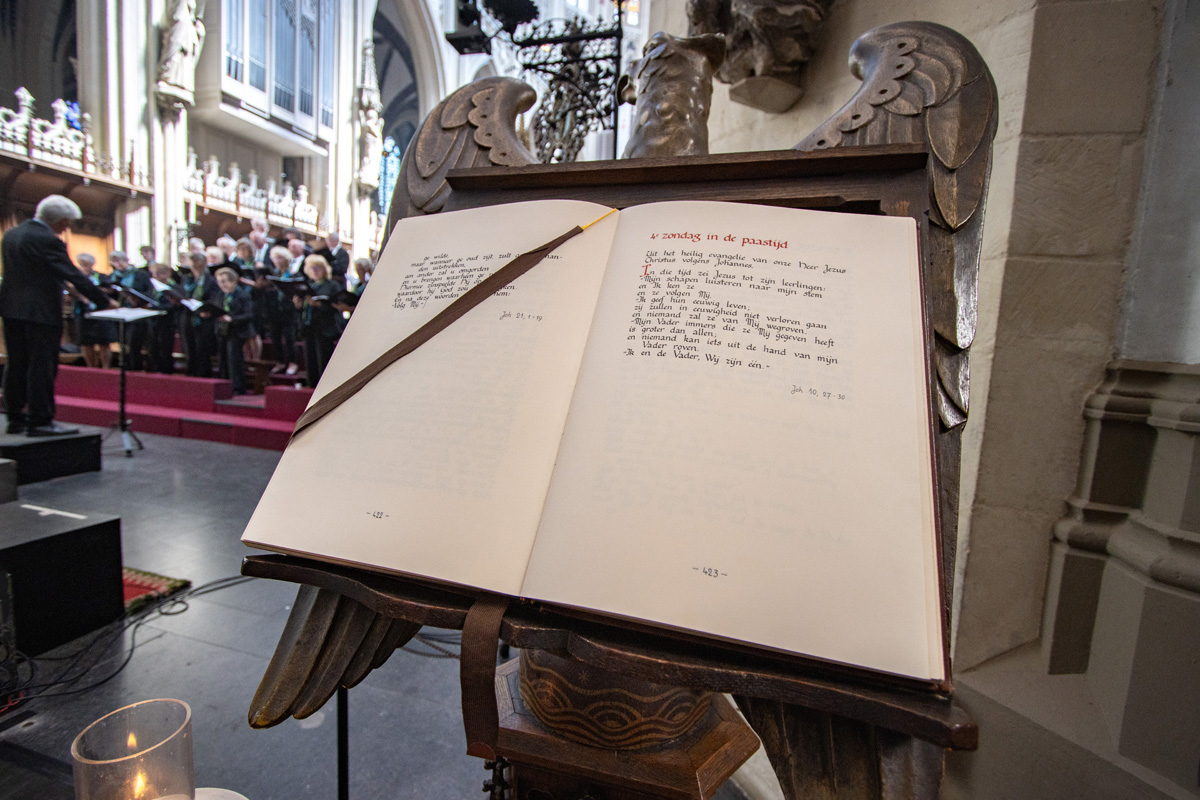 ge wilde,
maar wanneer ge oud zijt, zult ge
den uitstrekken,
an ander zal u omgorden
en u brengen waarheen ge
Hiermee zinspeelde Hij
waardoor hij God zou
En na deze woorden hem:
-Volg Mij.-
Joh 21, 1-19
-422-
4e zondag in de paastijd
Uit het heilig evangelie van onze Heer Jezus
Christus volgens Johannes.
In die tijd zei Jezus tot zijn leerlingen:
-Mijn schapen luisteren naar mijn stem
en Ik ken ze
en ze volgen Mij.
-Ik geef hun eeuwig leven;
zij zullen in eeuwigheid niet verloren gaan
en niemand zal ze van Mij wegroven.
-Mijn Vader immers die ze Mij gegeven heeft
is groter dan allen;
en niemand kan iets uit de hand van mijn
Vader roven.
-Ik en de Vader, Wij zijn één.-
Joh 10, 27-30
-423-